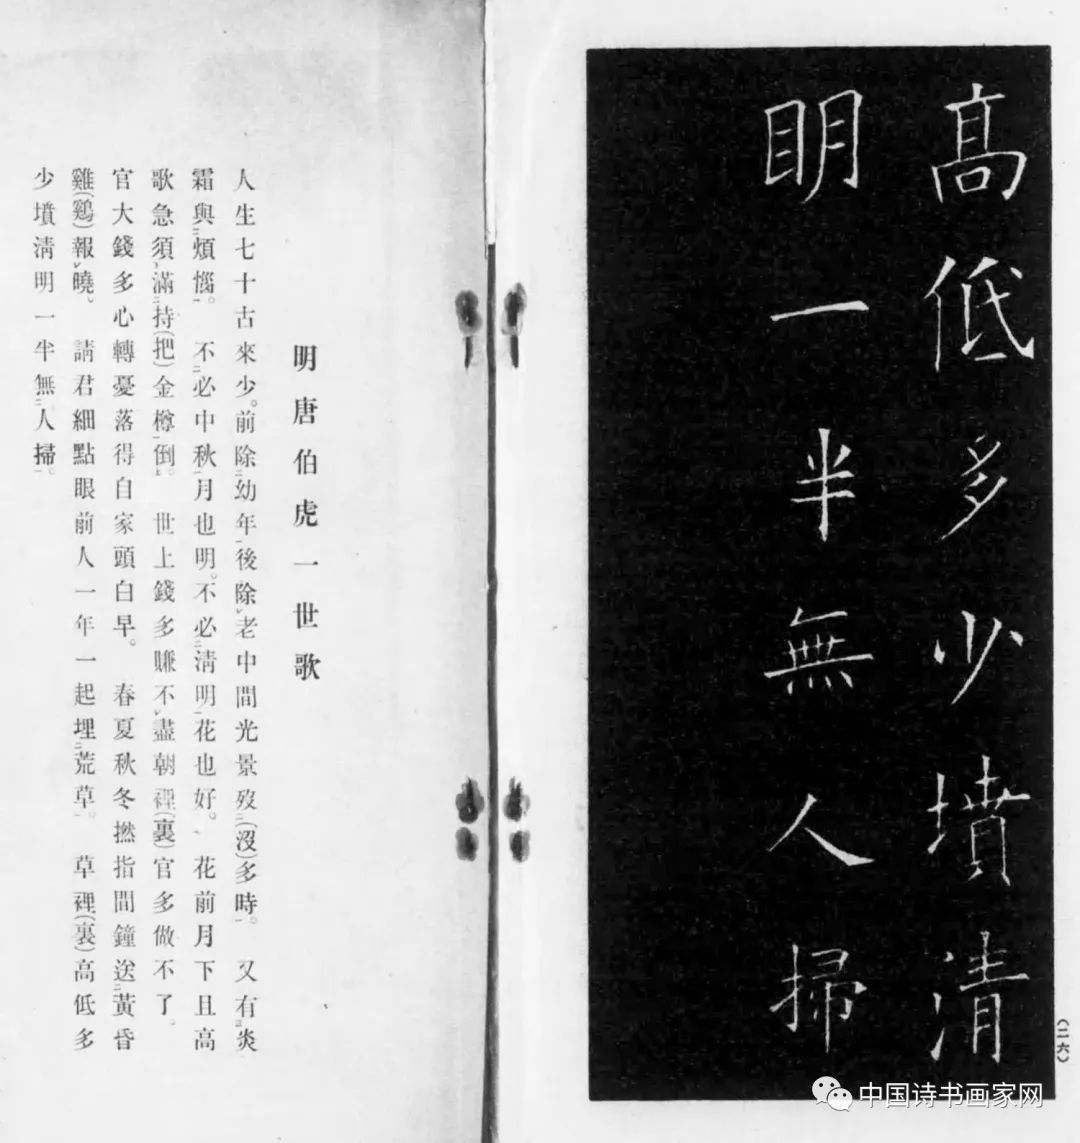 高低多少墳清
明一半無人掃
（二六）
明唐伯虎一世歌
人生七十古來少。前除幼年後除老中間光景歿(沒)多時。又有炎
霜與煩惱。不必中秋月也明。不必清明花也好。花前月下且高
歌急須滿持(把)金樽倒。世上錢多賺不盡朝裡(裏)官多做不了。
官大錢多心轉憂落得自家頭白早。春夏秋冬撚指間鐘送黃昏
雞(鷄)報曉。請君細點眼前人一年一起埋荒草。草裡(裏)高低多
少墳清明一半無人掃。
中国诗书画家网